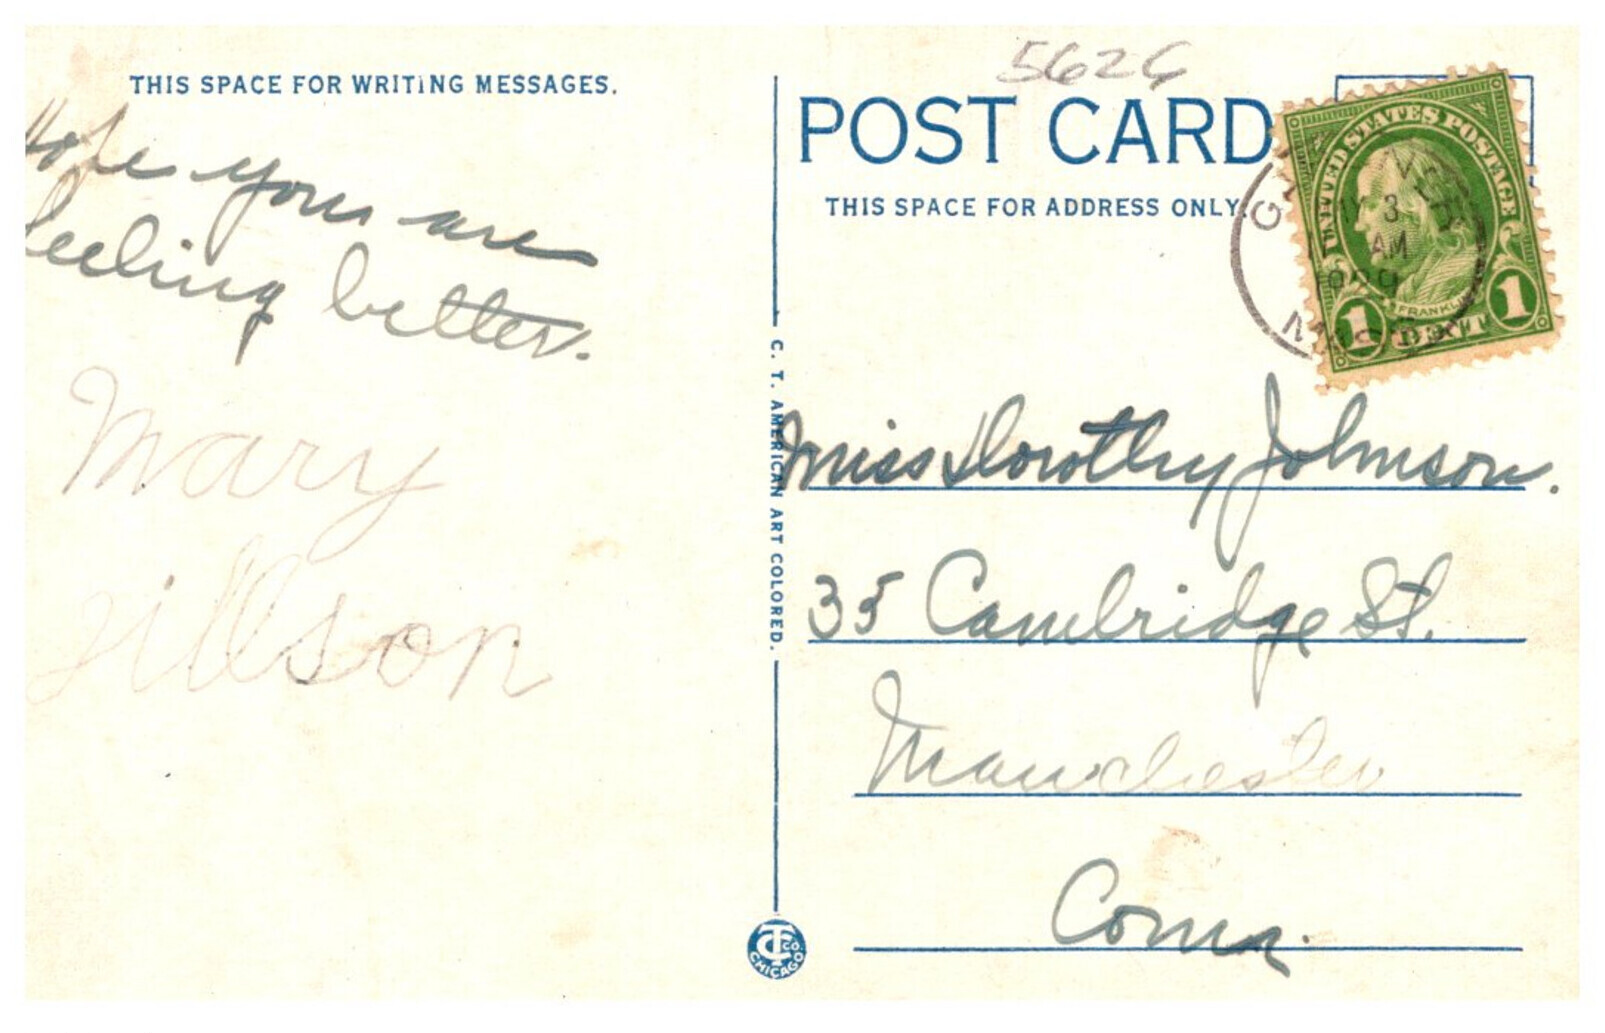 5626
THIS SPACE FOR WRITING MESSAGES.
POST CARD
THIS SPACE FOR ADDRESS ONLY.
Hope you are
feeling better.
Mary
Jillson
UNITED STATES POSTAGE
FRANKLIN
1 CENT 1
3
AM
1929
C. T. AMERICAN ART COLORED.
Miss Dorothy Johnson.
35 Cambridge St.
Manchester
Conn.
CT CO.
CHICAGO